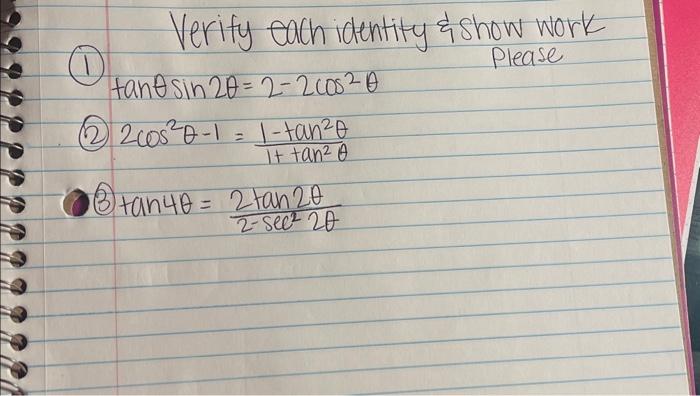 Verify each identity & show work
Please
①
tanθ sin 2θ = 2-2cos²θ
② 2cos²θ-1 = \frac{1-tan²θ}{1+tan²θ}
③ tan4θ = \frac{2tan2θ}{2-sec²2θ}